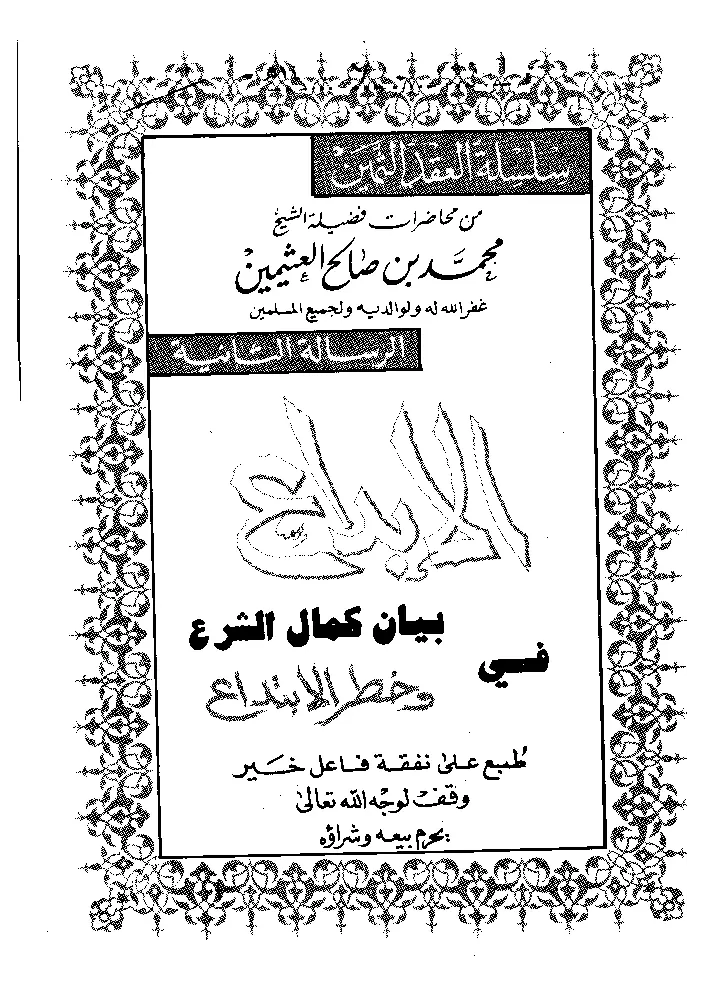 سلسلة العقد الثمين
من محاضرات فضيلة الشيخ
محمد بن صالح العثيمين
غفر الله له ولوالديه ولجميع المسلمين
الرسالة الثانية
الإبداع
في
بيان كمال الشرع
وخطر الابتداع
طبع على نفقة فاعل خير
وقف لوجه الله تعالى
يحرم بيعه وشراؤه